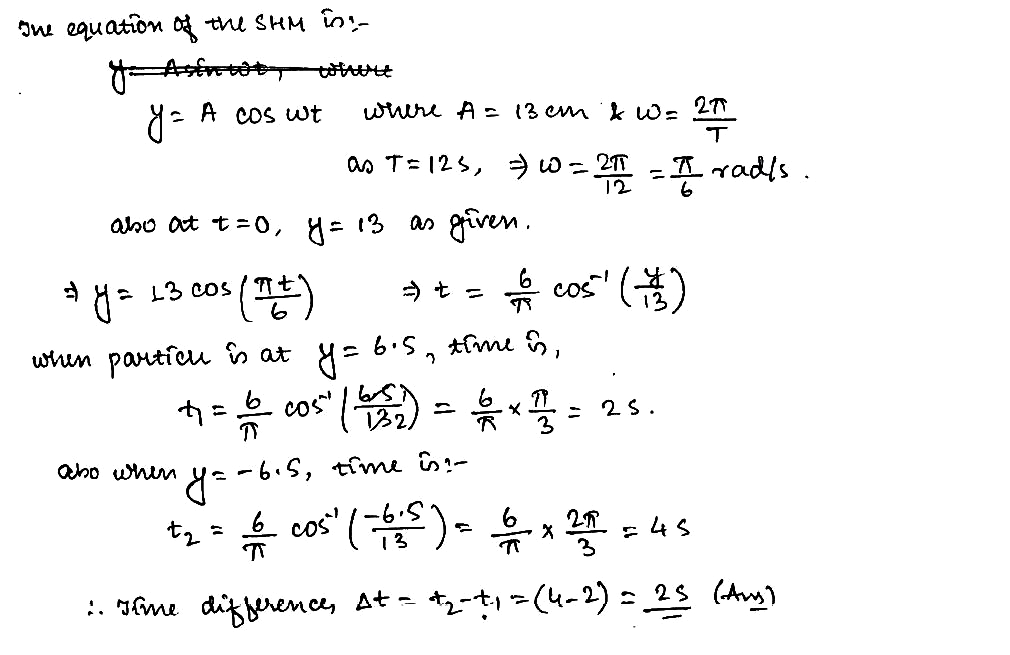 The equation of the SHM is:-
y = A sin wt, where
y = A cos wt where A = 13 cm & w = 2π/T
as T = 12 s, ⇒ w = 2π/12 = π/6 rad/s.
also at t = 0, y = 13 as given.
⇒ y = 13 cos (πt/6) ⇒ t = 6/π cos⁻¹ (y/13)
when particle is at y = 6.5, time is,
t₁ = 6/π cos⁻¹ (6.5/13 2) = 6/π × π/3 = 2 s.
also when y = -6.5, time is:-
t₂ = 6/π cos⁻¹ (-6.5/13) = 6/π × 2π/3 = 4 s
∴ Time difference, Δt = t₂-t₁ = (4-2) = 2s (Ans)